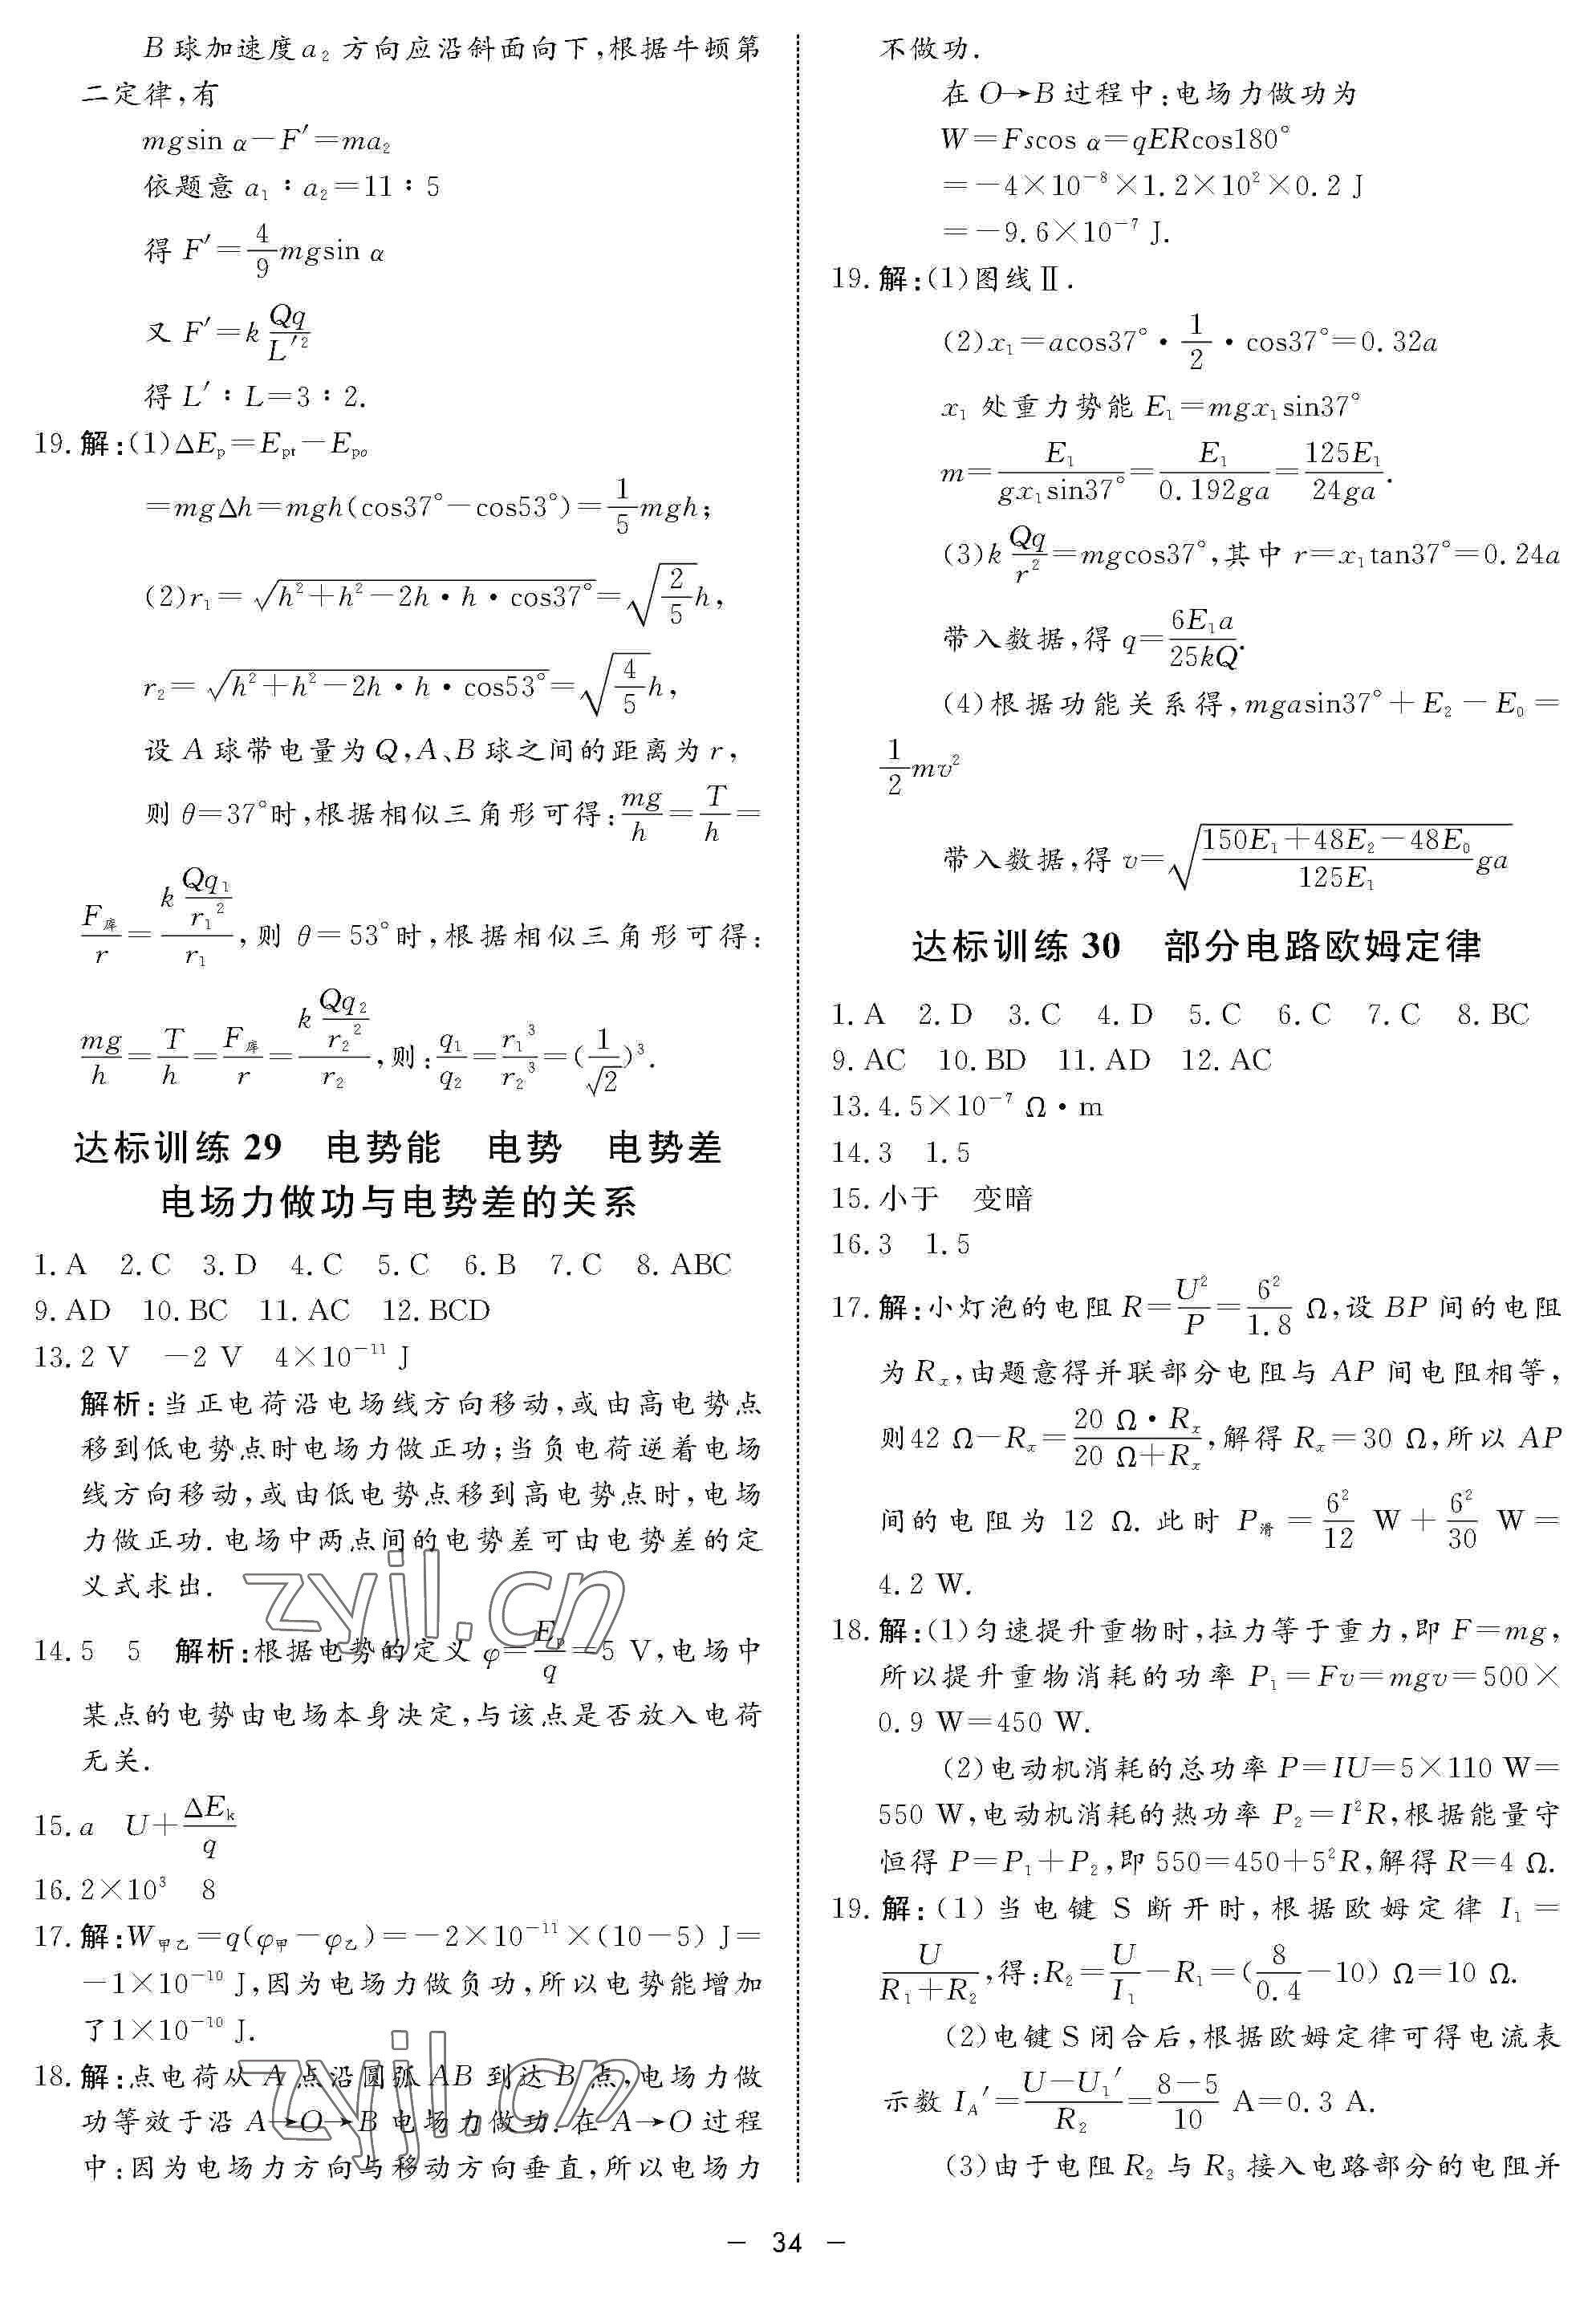 B球加速度a₂方向应沿斜面向下,根据牛顿第
二定律,有
mgsin α－F′=ma₂
依题意 a₁∶a₂=11∶5
得 F′=4/9 mgsin α
又 F′=k Qq/L′²
得 L′∶L=3∶2.
19.解:(1)ΔEₚ=Eₚₜ－Eₚₒ
=mgΔh=mgh(cos37°－cos53°)=1/5 mgh;
(2)r₁=√(h²+h²－2h·h·cos37°)=√(2/5) h,
r₂=√(h²+h²－2h·h·cos53°)=√(4/5) h,
设A球带电量为Q,A、B球之间的距离为r,
则θ=37°时,根据相似三角形可得:mg/h=T/h=
F库/r=(k Qq₁/r₁²)/r₁,则 θ=53°时,根据相似三角形可得:
mg/h=T/h=F库/r=(k Qq₂/r₂²)/r₂,则:q₁/q₂=r₁³/r₂³=(1/√2)³.
达标训练29 电势能 电势 电势差
电场力做功与电势差的关系
1.A 2.C 3.D 4.C 5.C 6.B 7.C 8.ABC
9.AD 10.BC 11.AC 12.BCD
13.2 V －2 V 4×10⁻¹¹ J
解析:当正电荷沿电场线方向移动,或由高电势点
移到低电势点时电场力做正功;当负电荷逆着电场
线方向移动,或由低电势点移到高电势点时,电场
力做正功.电场中两点间的电势差可由电势差的定
义式求出.
14.5 5 解析:根据电势的定义φ=Eₚ/q=5 V,电场中
某点的电势由电场本身决定,与该点是否放入电荷
无关.
15.a U+ΔEₖ/q
16.2×10³ 8
17.解:W甲乙=q(φ甲－φ乙)=－2×10⁻¹¹×(10－5) J=
－1×10⁻¹⁰ J,因为电场力做负功,所以电势能增加
了1×10⁻¹⁰ J.
18.解:点电荷从A点沿圆弧AB到达B点,电场力做
功等效于沿A→O→B电场力做功.在A→O过程
中:因为电场力方向与移动方向垂直,所以电场力
不做功.
在O→B过程中:电场力做功为
W=Fscos α=qERcos180°
=－4×10⁻⁸×1.2×10²×0.2 J
=－9.6×10⁻⁷ J.
19.解:(1)图线Ⅱ.
(2)x₁=acos37°·1/2·cos37°=0.32a
x₁处重力势能E₁=mgx₁sin37°
m=E₁/(gx₁sin37°)=E₁/(0.192ga)=125E₁/(24ga).
(3)k Qq/r²=mgcos37°,其中r=x₁tan37°=0.24a
带入数据,得q=6E₁a/(25kQ).
(4)根据功能关系得,mgasin37°+E₂－E₀=
1/2 mv²
带入数据,得v=√((150E₁+48E₂－48E₀)/(125E₁) ga)
达标训练30 部分电路欧姆定律
1.A 2.D 3.C 4.D 5.C 6.C 7.C 8.BC
9.AC 10.BD 11.AD 12.AC
13.4.5×10⁻⁷ Ω·m
14.3 1.5
15.小于 变暗
16.3 1.5
17.解:小灯泡的电阻R=U²/P=6²/1.8 Ω,设BP间的电阻
为Rₓ,由题意得并联部分电阻与AP间电阻相等,
则42 Ω－Rₓ=(20 Ω·Rₓ)/(20 Ω+Rₓ),解得Rₓ=30 Ω,所以AP
间的电阻为12 Ω.此时P滑=6²/12 W+6²/30 W=
4.2 W.
18.解:(1)匀速提升重物时,拉力等于重力,即F=mg,
所以提升重物消耗的功率P₁=Fv=mgv=500×
0.9 W=450 W.
(2)电动机消耗的总功率P=IU=5×110 W=
550 W,电动机消耗的热功率P₂=I²R,根据能量守
恒得P=P₁+P₂,即550=450+5²R,解得R=4 Ω.
19.解:(1)当电键S断开时,根据欧姆定律I₁=
U/(R₁+R₂),得:R₂=U/I₁－R₁=(8/0.4－10) Ω=10 Ω.
(2)电键S闭合后,根据欧姆定律可得电流表
示数I_A′=(U－U₁′)/R₂=(8－5)/10 A=0.3 A.
(3)由于电阻R₂与R₃接入电路部分的电阻并
zyjl.cn
zyjl.cn
－ 34 －